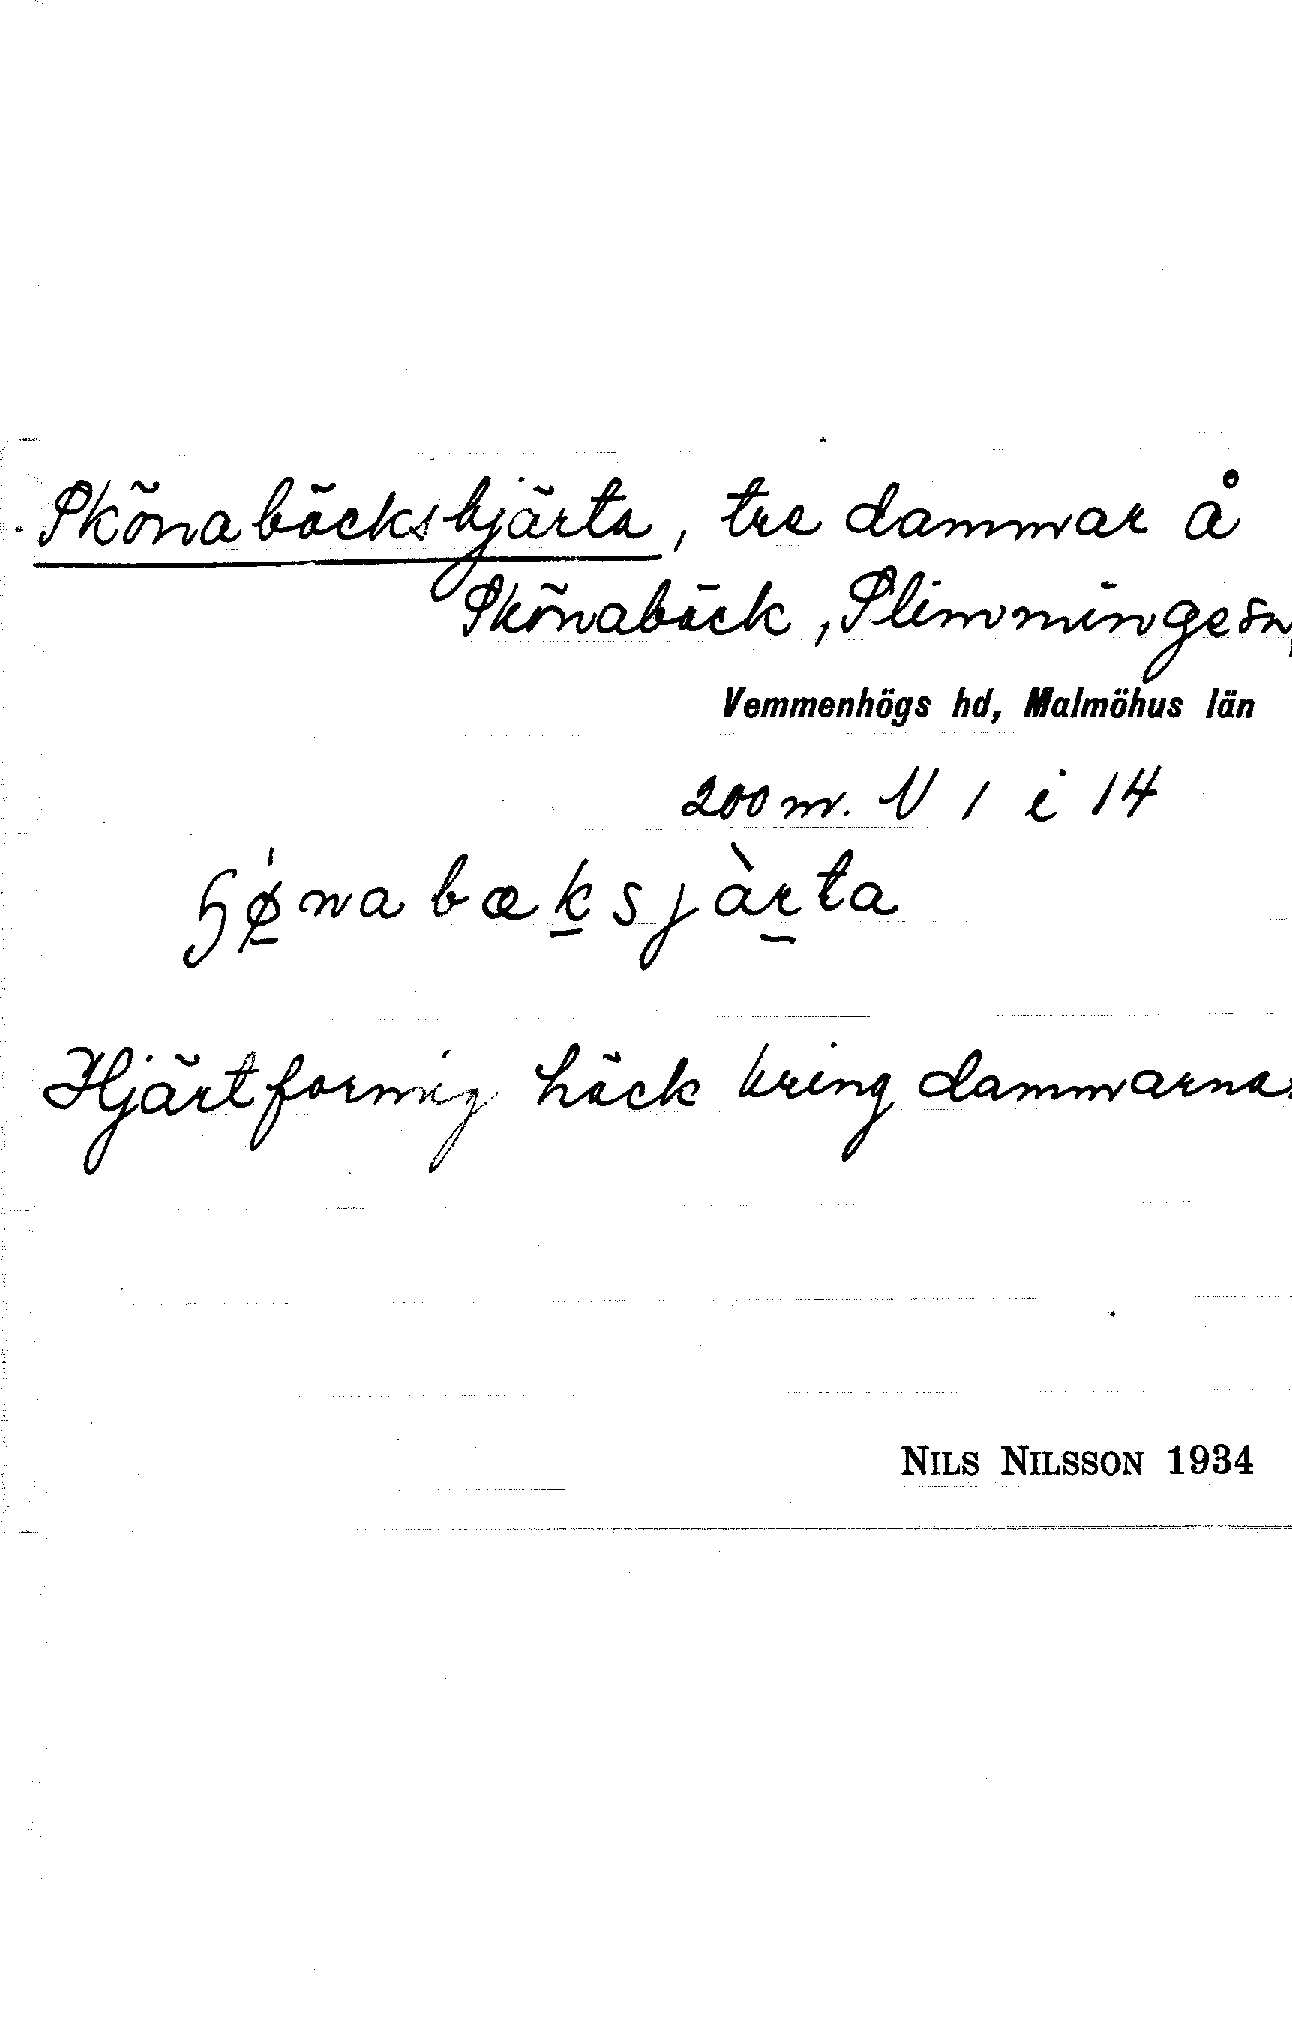 Skönabäckshjärta, tre dammar å
Skönabäck, Slimminge sn,
Vemmenhögs hd, Malmöhus län
200 m. N 1 i 14
bæksjàrta
Hjärtformig häck kring dammarna.
NILS NILSSON 1934